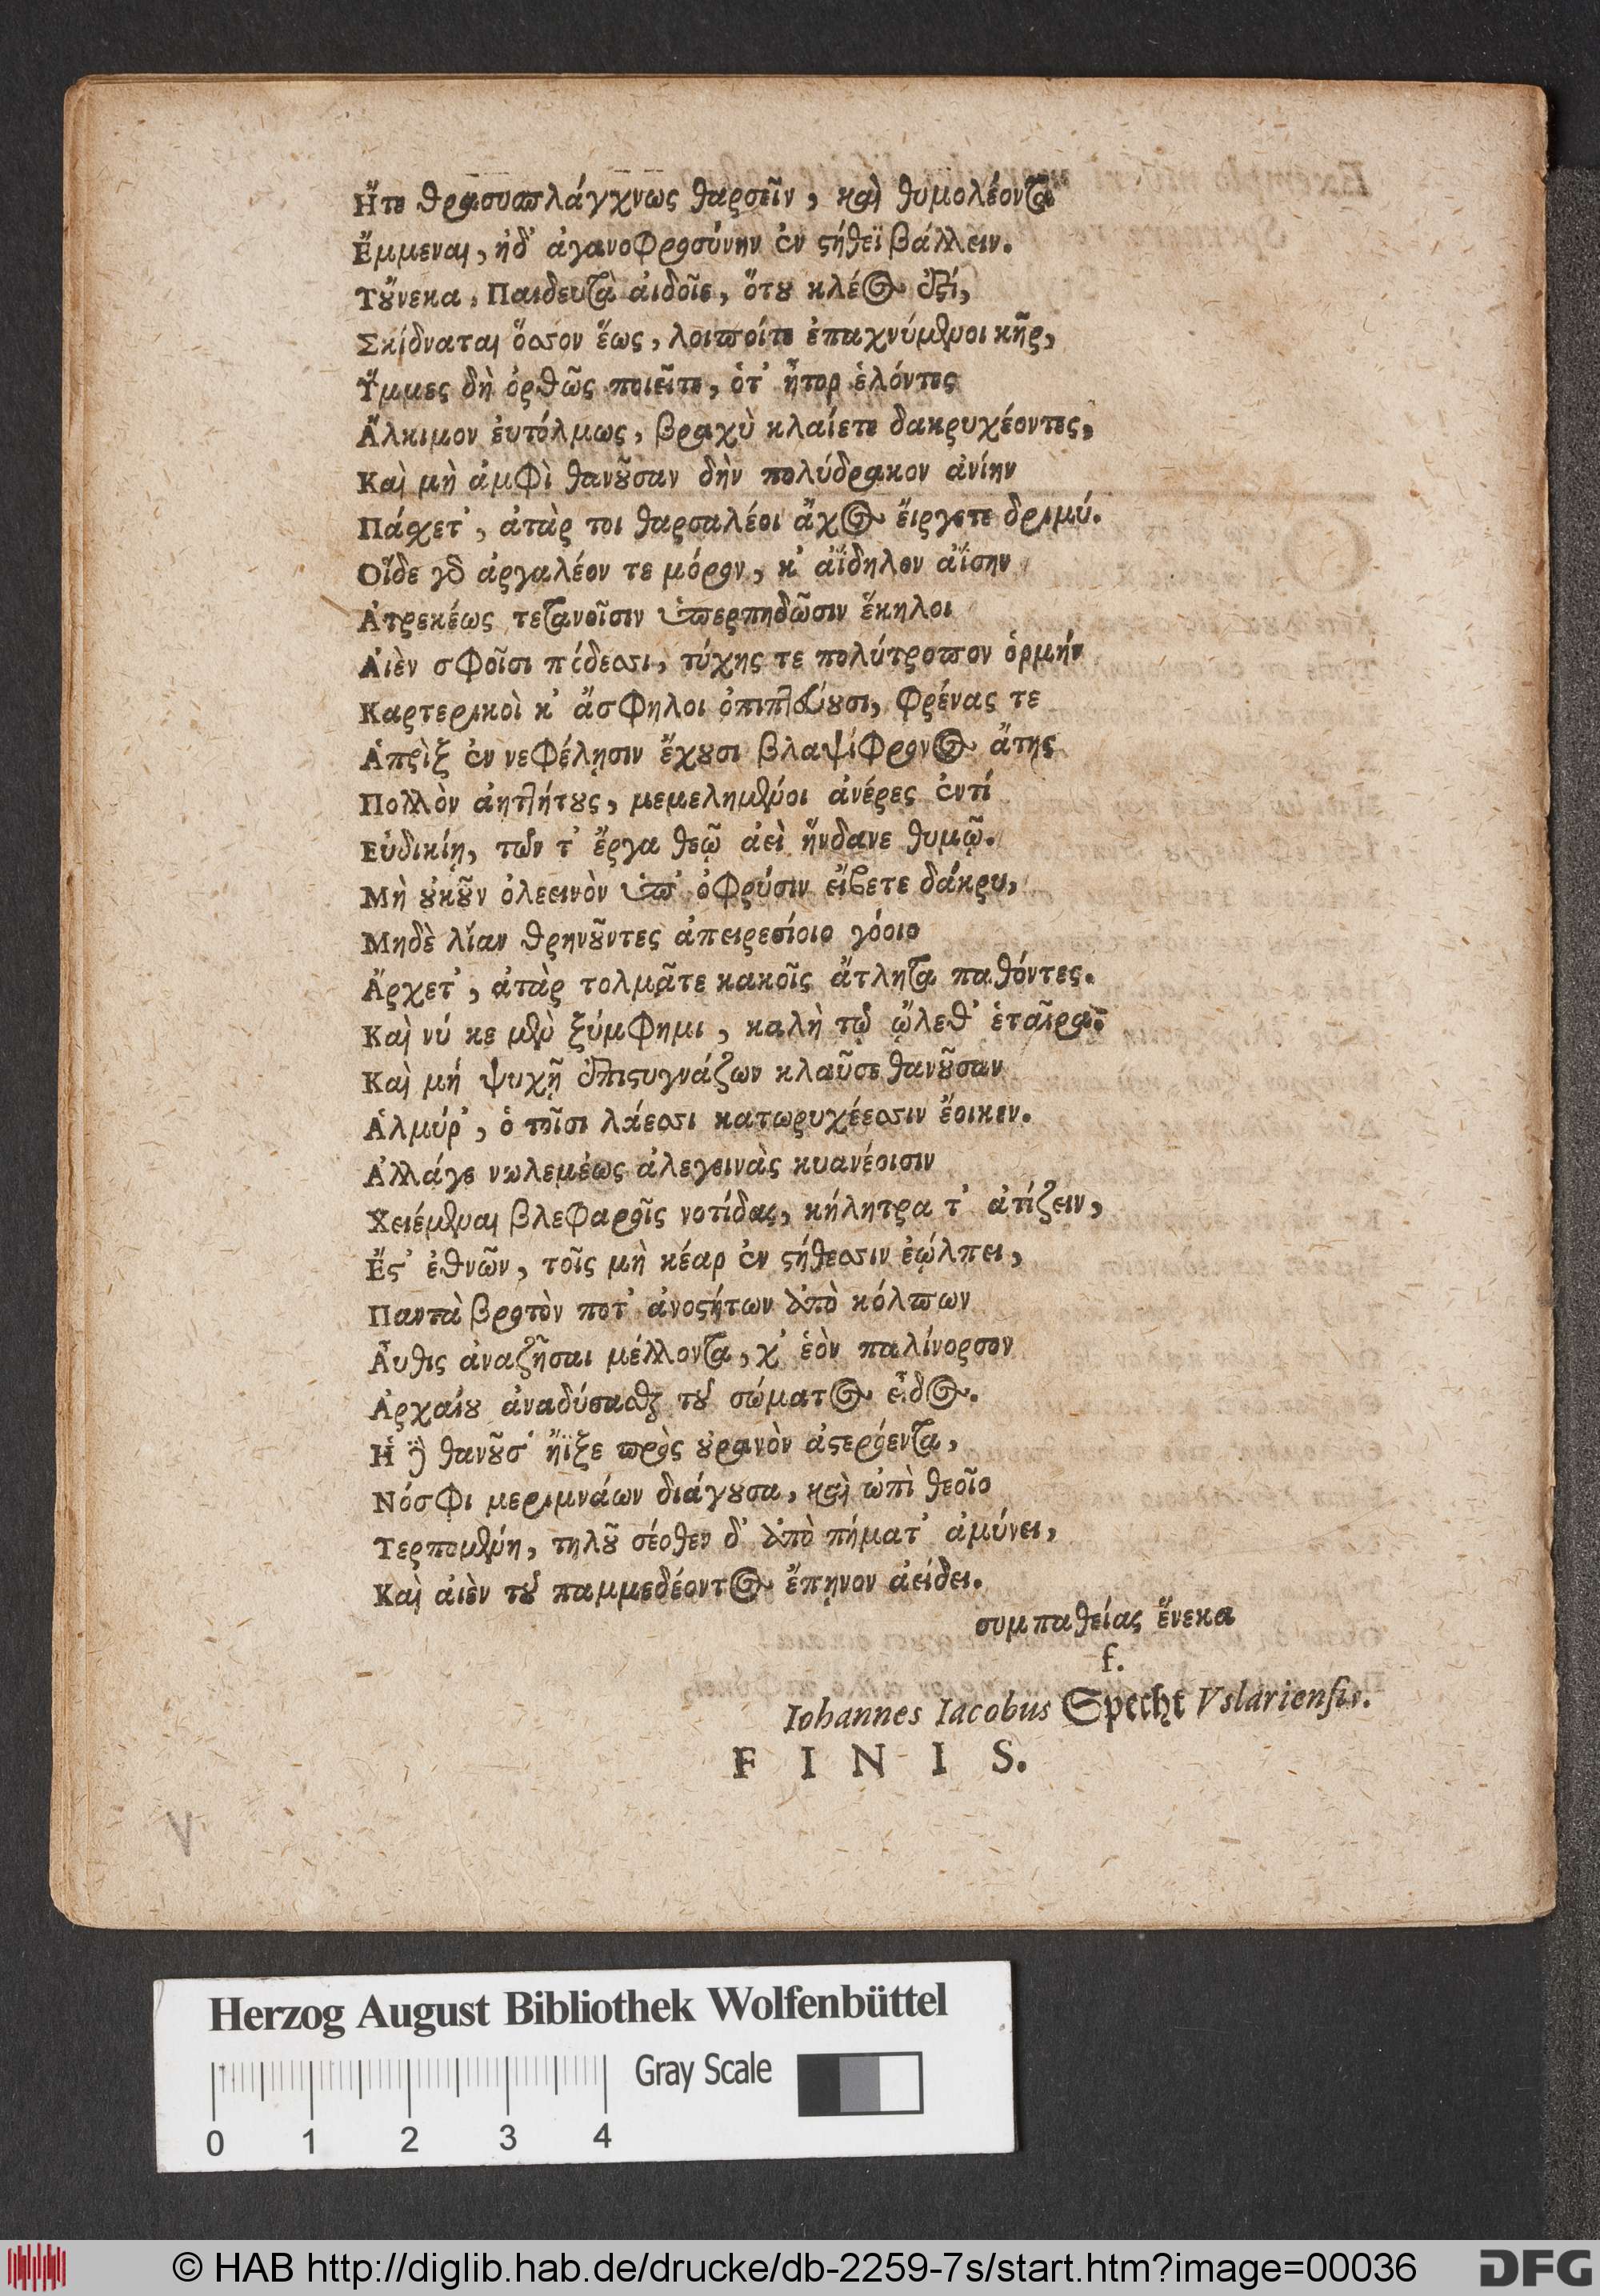 Ἤτε θρασυσπλάγχνως θαρσεῖν, καὶ θυμολέοντα
Ἔμμεναι, ἠδ' ἀγανοφροσύνην ἐν στήθεϊ βάλλειν.
Τοὔνεκα, Παιδευτὰ αἰδοῖε, ὅτου κλέος ἐστί,
Σκίδναται ὅσσον ἕως, λοιποίτε ἐπαχνύμενοι κῆρ,
Υ̓́μμες δὴ ὀρθῶς ποιεῖτε, ὁτ' ἦτορ ἑλόντες
Ἄλκιμον ἐυτόλμως, βραχὺ κλαίετε δακρυχέοντες,
Καὶ μὴ ἀμφὶ θανοῦσαν δὴν πολύδρακον ἀνίην
Πάσχετ', ἀτὰρ τοι θαρσαλέοι ἄχος ἔιργετε δριμύ.
Οἵδε γὰρ ἀργαλέον τε μόρον, κ' ἀΐδηλον ἀΐσην
Ἀτρεκέως τεταγοῖσιν ὑπερπηδῶσιν ἕκηλοι
Αἰὲν σφοῖσι πίδεσσι, τύχης τε πολύτροπον ὁρμήν
Καρτερικοὶ κ' ἄσφηλοι ὀπιπτεύουσι, φρένας τε
Ἀπρὶξ ἐν νεφέλῃσιν ἔχουσι βλαψίφρονος ἄτης
Πολλὸν ἀηττήτους, μεμελημένοι ἀνέρες ἐντί
Εὐδικίῃ, τῶν τ' ἔργα θεῷ ἀεὶ ἥνδανε θυμῷ.
Μὴ οὐκοῦν ὀλεεινὸν ὑπ' ὀφρύσιν εἴβετε δάκρυ,
Μηδὲ λίαν θρηνοῦντες ἀπειρεσίοιο γόοιο
Ἄρχετ', ἀτὰρ τολμᾶτε κακοῖς ἄτλητα παθόντες.
Καὶ νύ κε μὲν ξύμφημι, καλὴ τῷ ᾤλεθ' ἑταῖρα:
Καὶ μή ψυχῇ ἐπιστυγνάζων κλαῦσε θανοῦσαν
Ἁλμύρ', ὁ τοῖσι λάεσσι κατωρυχέεσσιν ἔοικεν.
Ἀλλάγε νωλεμέως ἀλεγεινὰς κυανέοισιν
Χειέμεναι βλεφαροῖς νοτίδας, κήλητρα τ' ἀτίζειν,
Ἔστ' ἐθνῶν, τοῖς μὴ κέαρ ἐν στήθεσσιν ἐῴλπει,
Παντὰ βροτὸν ποτ' ἀνοστήτων ἀπὸ κόλπων
Ἆυθις ἀναζῆσαι μέλλοντα, χ' ἑὸν παλίνορσον
Ἀρχαίου ἀναδύσασθαι τοῦ σώματος εἶδος.
Ἡ δὲ θανοῦσ' ἤϊξε πρὸς οὐρανὸν ἀστερόεντα,
Νόσφι μεριμνάων διάγουσα, καὶ ὠπὶ θεοῖο
Τερπομένη, τηλοῦ σέοθεν δ' ἀπὸ πήματ' ἀμύνει,
Καὶ ἀιὲν τοῦ παμμεδέοντος ἔπῃνον ἀείδει.
συμπαθείας ἕνεκα
f.
Iohannes Iacobus Specht Vslariensis.
FINIS.
V
Herzog August Bibliothek Wolfenbüttel
Gray Scale
0 1 2 3 4
© HAB http://diglib.hab.de/drucke/db-2259-7s/start.htm?image=00036
DFG